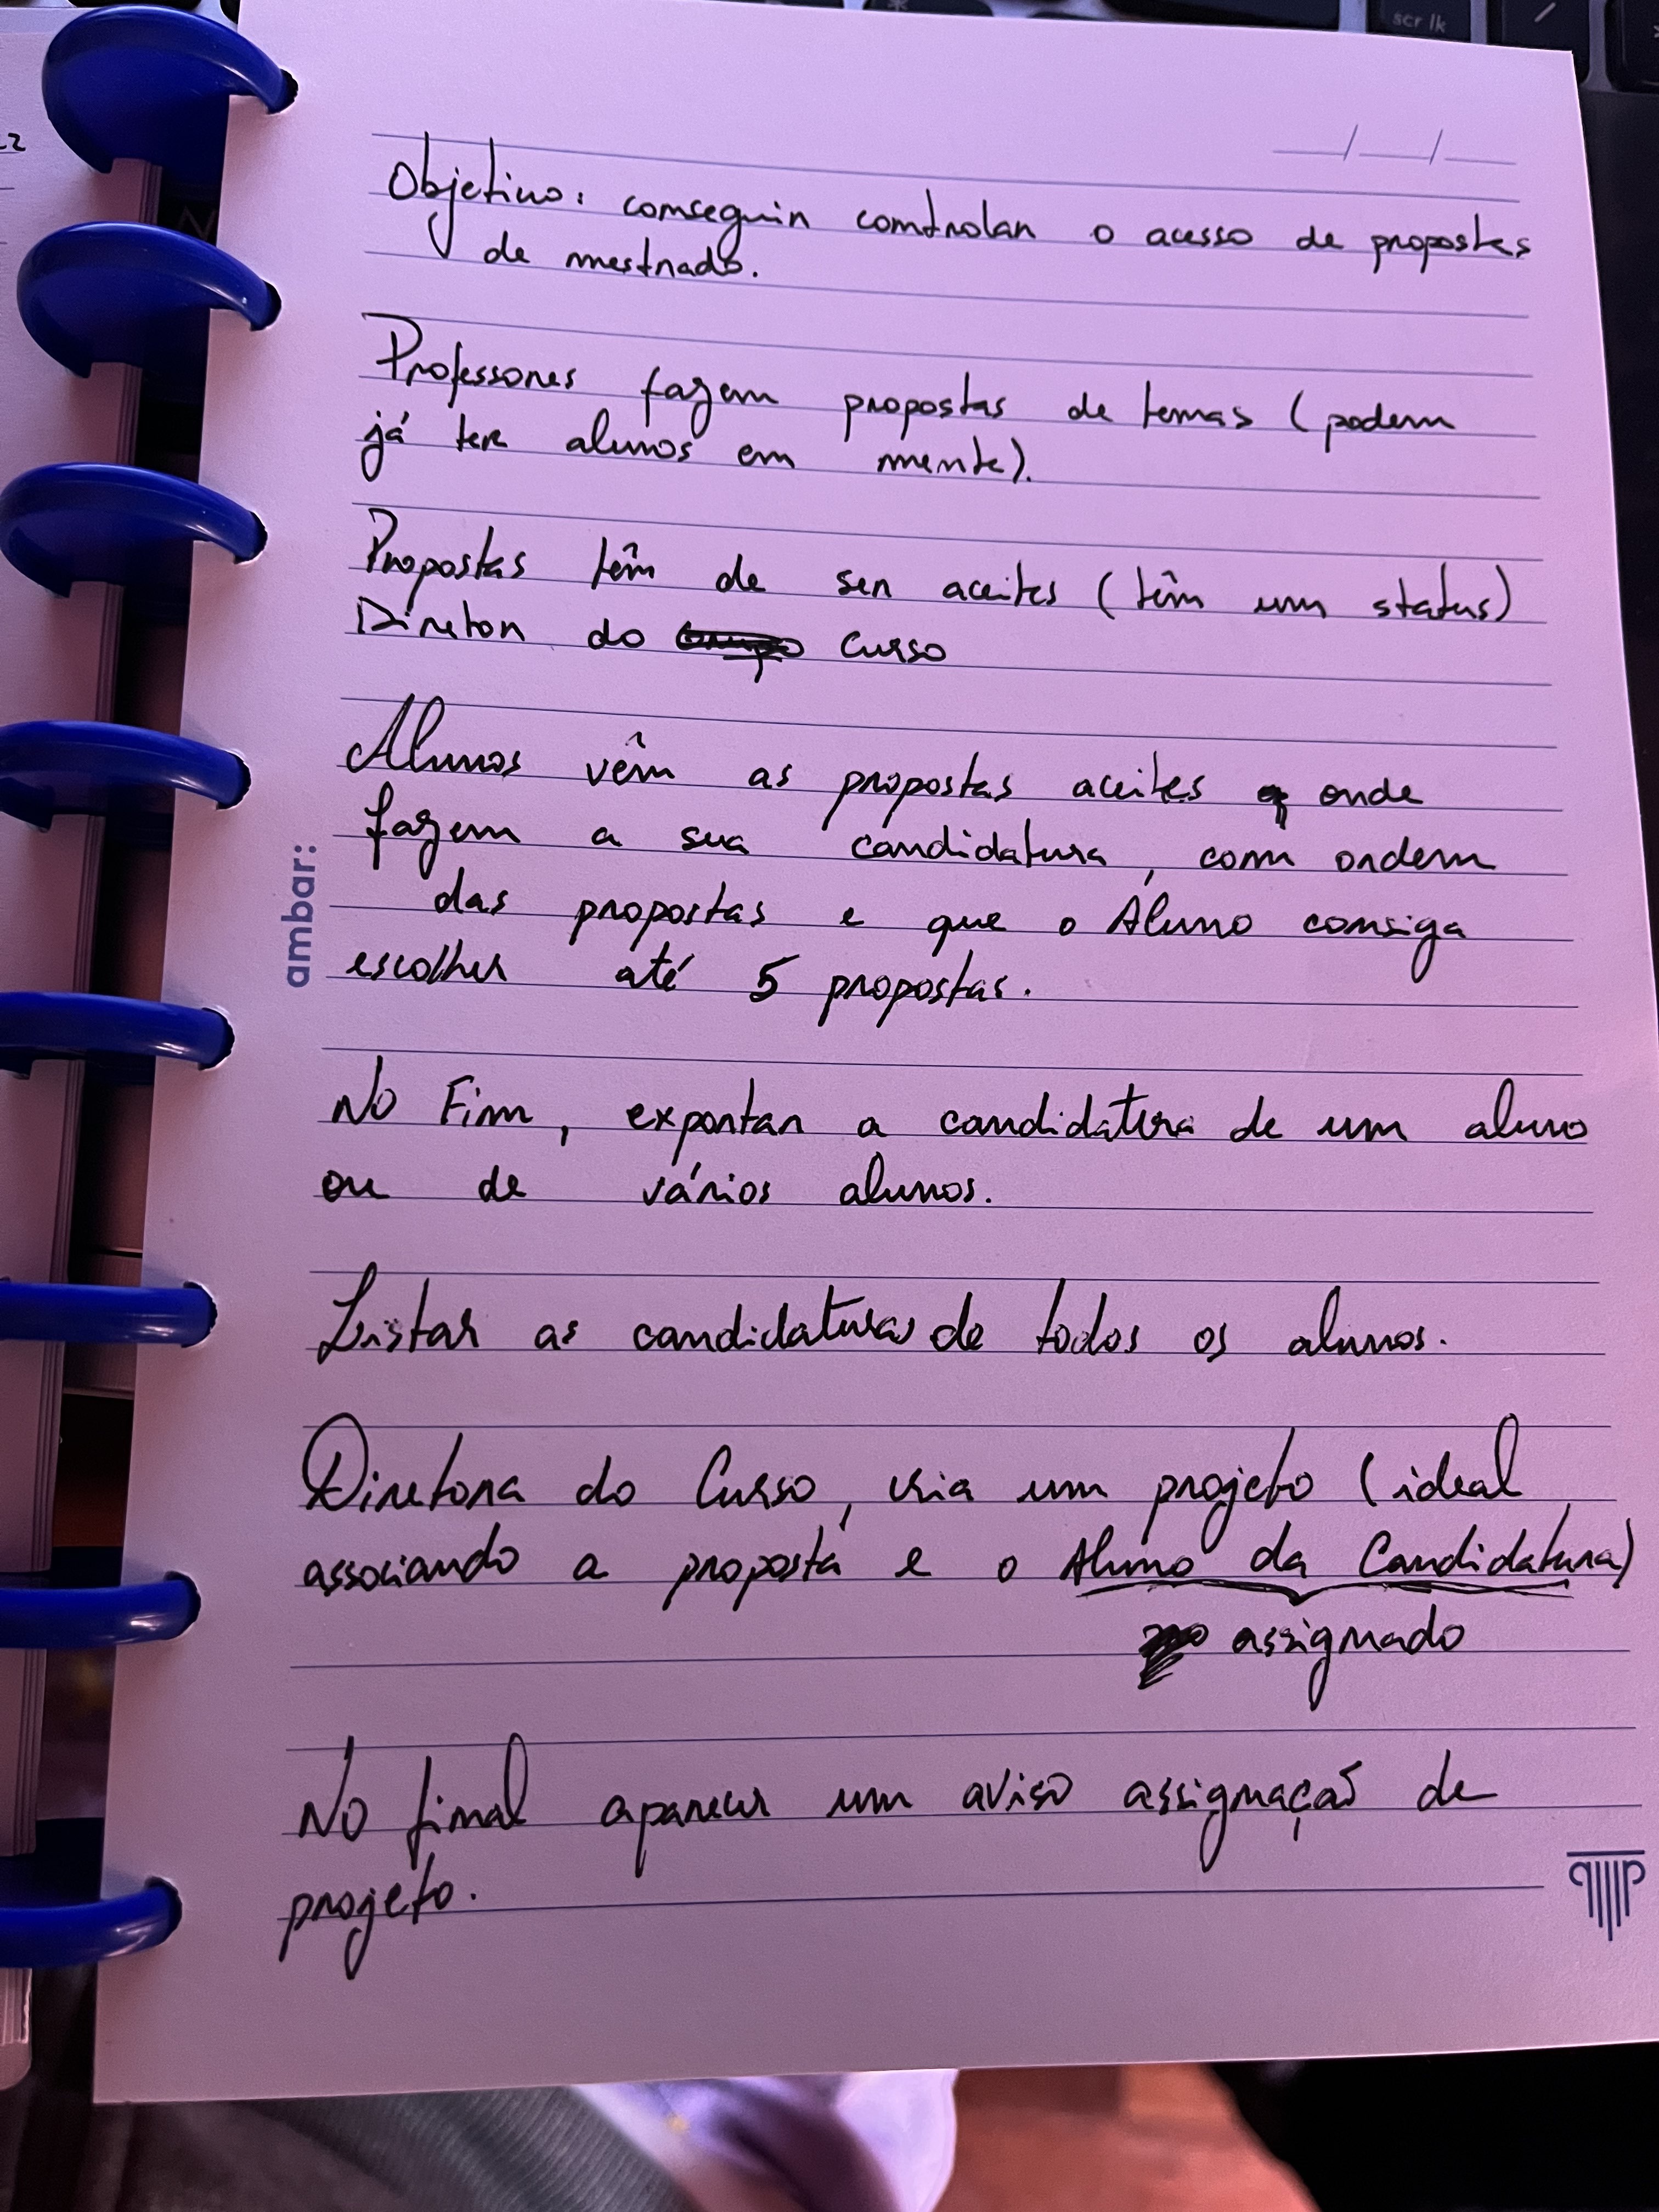 scr lk
22
Objetivo: conseguir controlar o acesso de propostas
de mestrado.
Professores fazem propostas de temas (podem
já ter alunos em mente).
Propostas têm de ser aceites (têm um status)
Diretor do curso
Alunos vêm as propostas aceites onde
fazem a sua candidatura, com ordem
das propostas e que o Aluno consiga
escolher até 5 propostas.
No Fim, exportar a candidatura de um aluno
ou de vários alunos.
Listar as candidaturas de todos os alunos.
Diretora do Curso, cria um projeto (ideal
associando a proposta e o Aluno da Candidatura)
assignado
No final aparecer um aviso assignação de
projeto.
ambar: